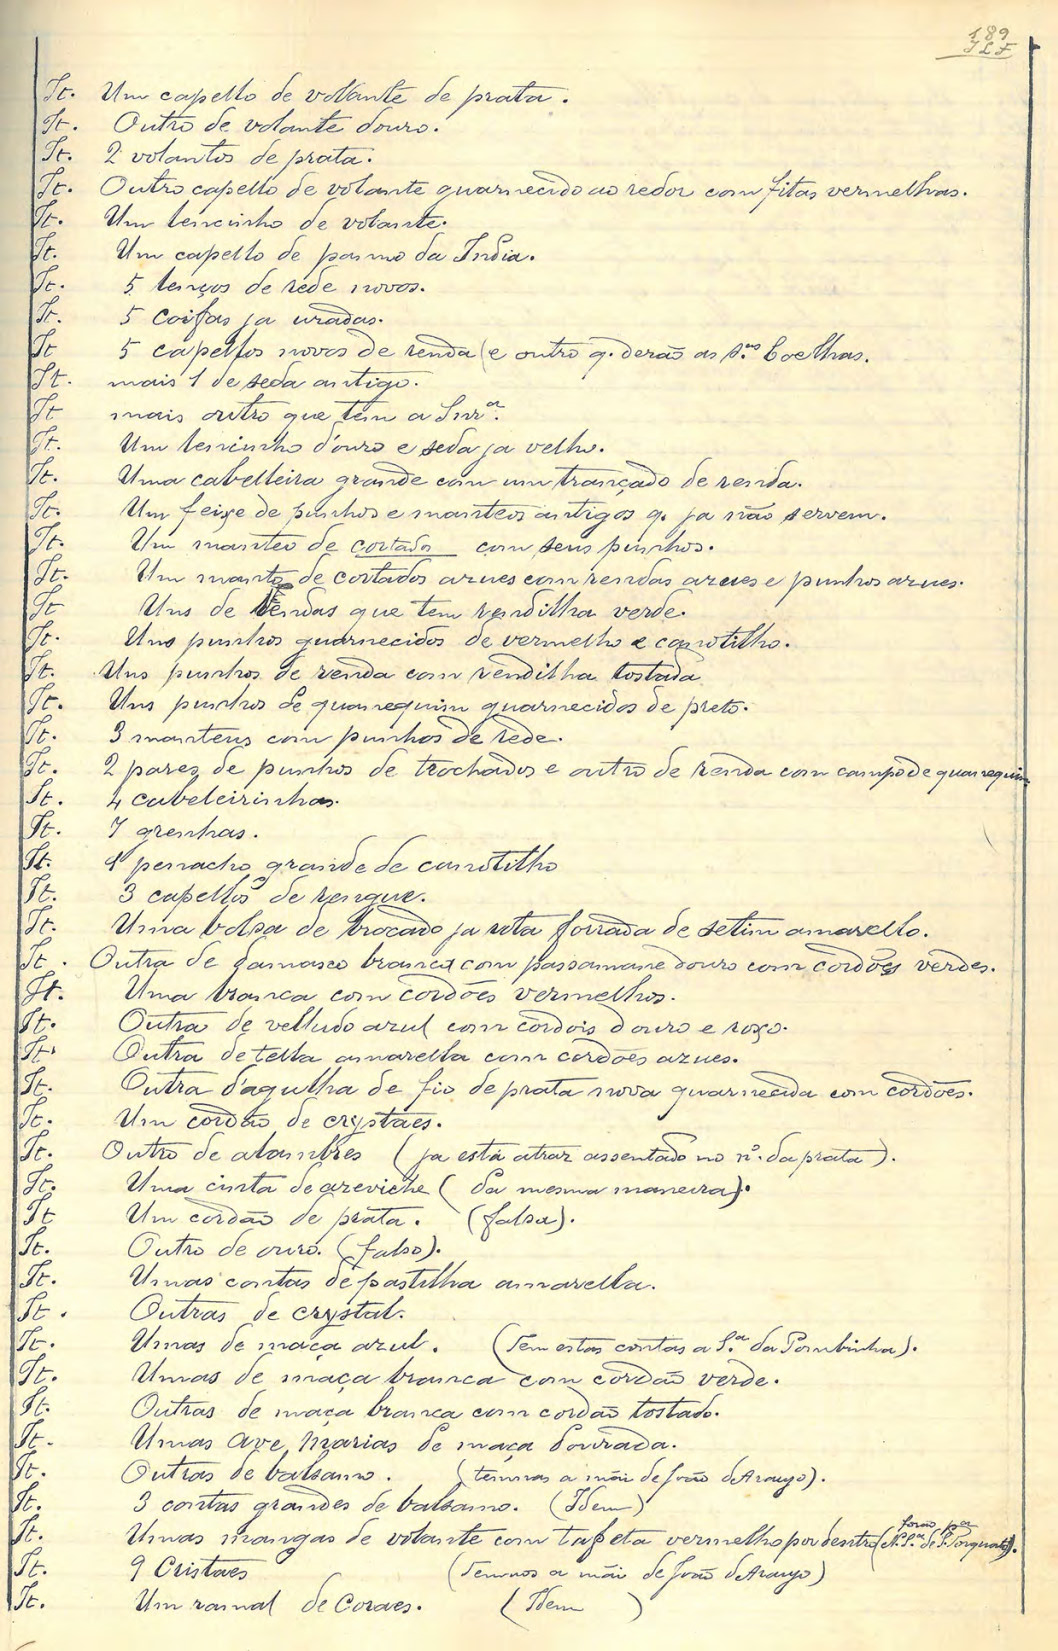 189
JLF
It. Um capello de volante de prata.
It. Outro de volante douro.
It. 2 volantes de prata.
It. Outro capello de volante guarnecido ao redor com fitas vermelhas.
It. Um lencinho de volante.
It. Um capello de panno da India.
It. 5 lenços de rede novos.
It. 5 coifas ja uzadas.
It 5 capellos novos de renda (e outro q. derão as S.ras Coelhas.
It. mais 1 de seda antigo.
It mais outro que tem a Snr.a
It. Um lencinho d'ouro e seda ja velho.
It. Uma cabelleira grande com um trançado de renda.
It. Um feixe de punhos e manteos antigos q. ja não servem.
It. Um manteo de cortados com seus punhos.
It. Um manto de cortados azues com rendas azues e punhos azues.
It Uns de rendas que tem rendilha verde.
It. Uns punhos guarnecidos de vermelho e canotilho.
It. Uns punhos de renda com rendilha tostada
It. Uns punhos de guarrequim guarnecidos de preto.
It. 3 manteus com punhos de rede.
It. 2 pares de punhos de trochados e outro de renda com campo de guarrequim.
It. 4 cabeleirinhas.
It. 7 grenhas.
It. 1 penacho grande de canotilho
It. 3 capellos de rengue.
It. Uma bolsa de brocado ja rota forrada de setim amarello.
It. Outra de damasco branca com passamane douro com cordões verdes.
It. Uma branca com cordões vermelhos.
It. Outra de velludo azul com cordois douro e roxo.
It. Outra de tella amarella com cordões azues.
It. Outra d'agulha de fio de prata nova guarnecida com cordões.
It. Um cordão de crystaes.
It. Outro de alambres (ja está atraz assentado no n.o da prata).
It. Uma cinta de azeviche (da mesma maneira).
It Um cordão de prata. (falsa).
It. Outro de ouro. (falso).
It. Umas contas de pastilha amarella.
It. Outras de crystal.
It. Umas de maça azul. (Tem estas contas a S.a da Pombinha).
It. Umas de maça branca com cordão verde.
It. Outras de maça branca com cordão tostado.
It. Umas Ave Marias de maça dourada.
It. Outras de balsamo. (temnas a mãi de João d'Araujo).
It. 3 contas grandes de balsamo. (Idem)
It. Umas mangas de volante com tafeta vermelho por dentro (forão p.a N. S.a de S. Torquato).
It. 9 Cristaes (Temnos a mãi de João d'Araujo)
It. Um ramal de Coraes. (Idem)